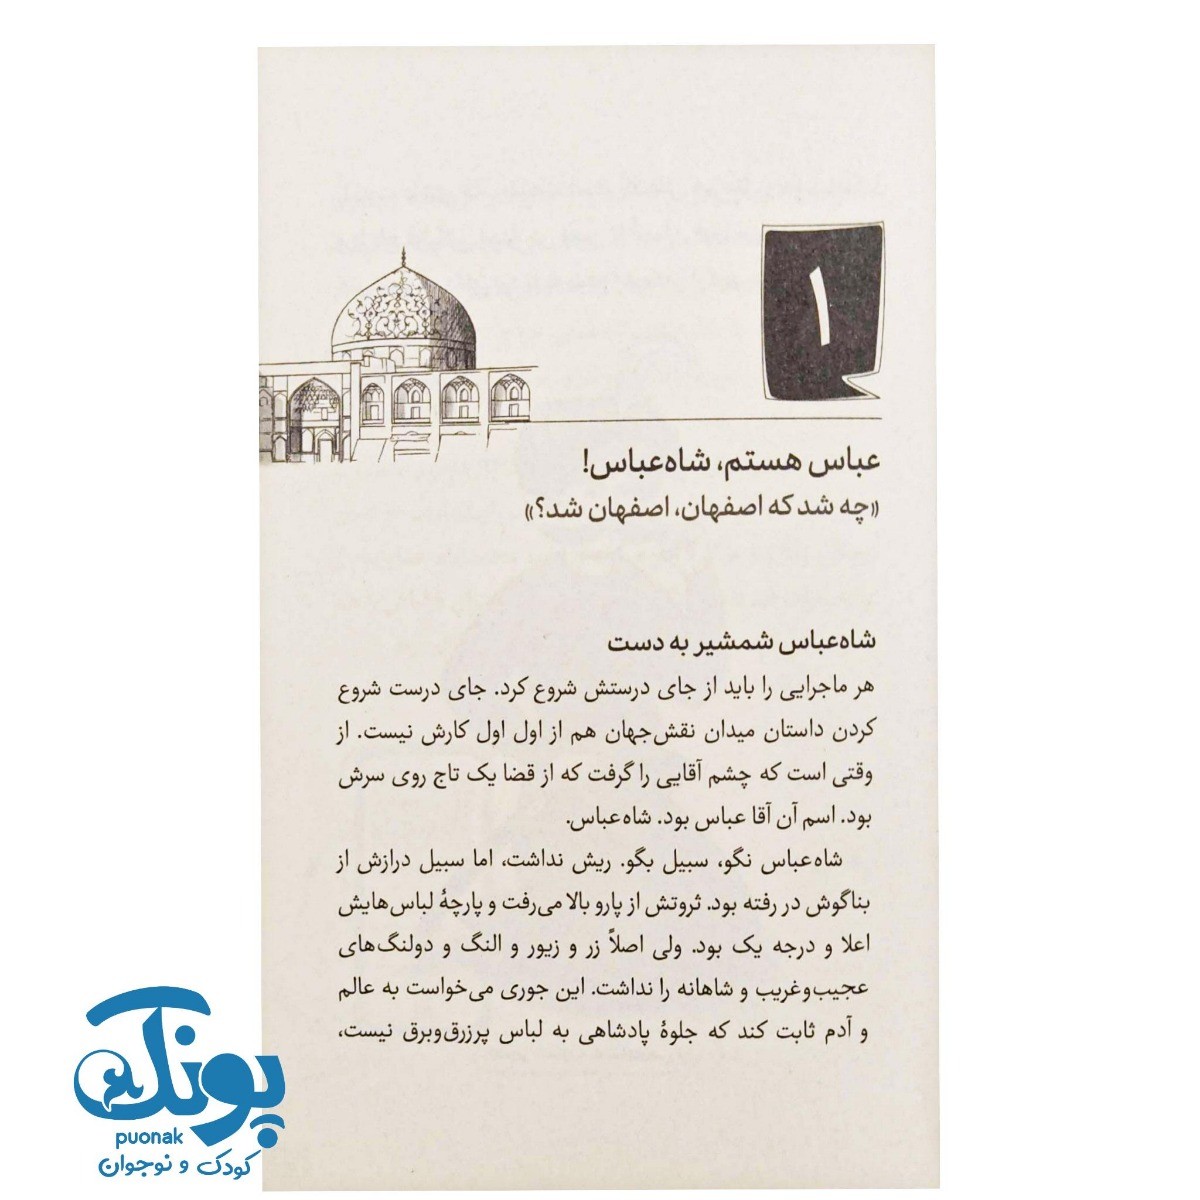 ۱
عباس هستم، شاه‌عباس!
«چه شد که اصفهان، اصفهان شد؟»
شاه‌عباس شمشیر به دست
هر ماجرایی را باید از جای درستش شروع کرد. جای درست شروع
کردن داستان میدان نقش‌جهان هم از اول اول کارش نیست. از
وقتی است که چشم آقایی را گرفت که از قضا یک تاج روی سرش
بود. اسم آن آقا عباس بود. شاه‌عباس.
شاه‌عباس نگو، سبیل بگو. ریش نداشت، اما سبیل درازش از
بناگوش در رفته بود. ثروتش از پارو بالا می‌رفت و پارچهٔ لباس‌هایش
اعلا و درجه یک بود. ولی اصلاً زر و زیور و النگ و دولنگ‌های
عجیب‌وغریب و شاهانه را نداشت. این جوری می‌خواست به عالم
و آدم ثابت کند که جلوهٔ پادشاهی به لباس پرزرق‌وبرق نیست،
پونک
puonak
کودک و نوجوان